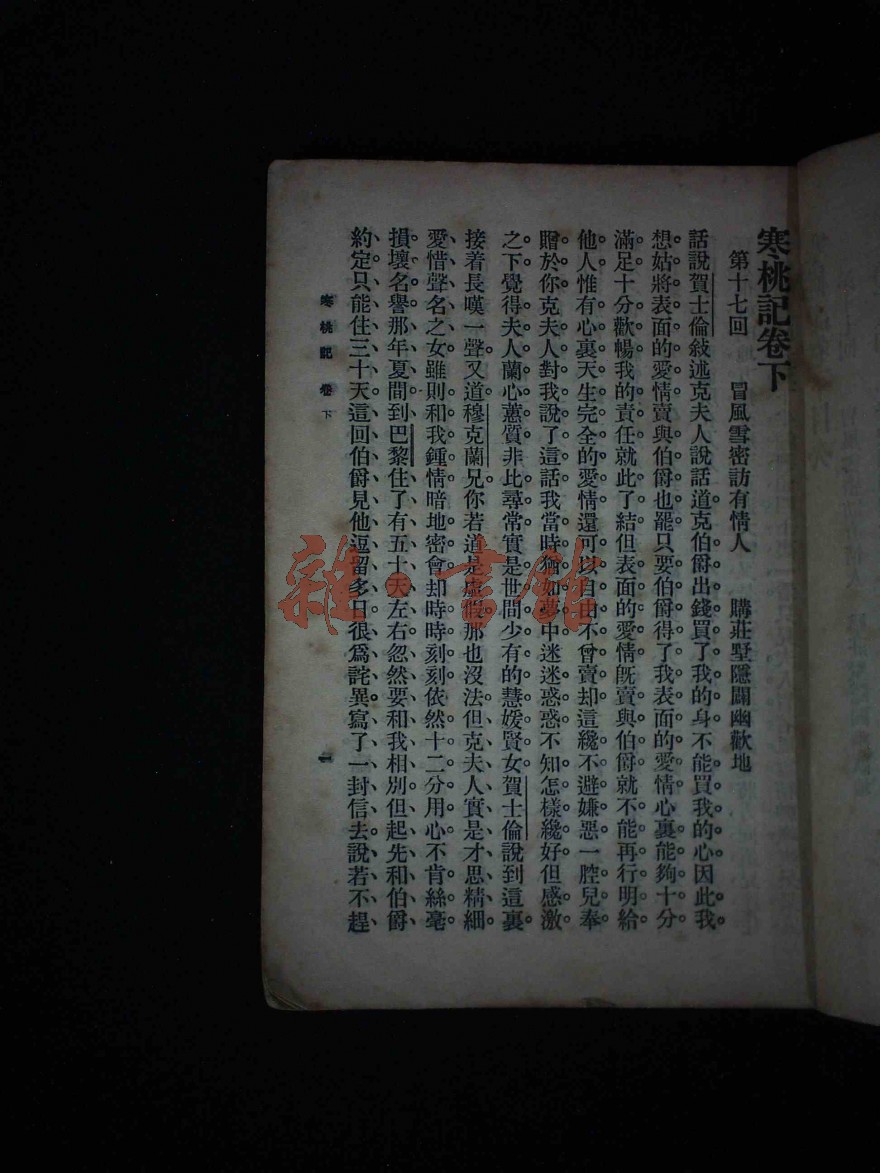 寒桃記卷下
第十七回 冒風雪密訪有情人 購莊墅隱闢幽歡地
話說賀士倫敍述克夫人說話道克伯爵出錢買了我的身不能買我的心因此我
想姑將表面的愛情賣與伯爵也罷只要伯爵得了我表面的愛情心裏能夠十分
滿足十分歡暢我的責任就此了結但表面的愛情既賣與伯爵就不能再行明給
他人惟有心裏天生完全的愛情還可以自由不曾賣却這纔不避嫌惡一腔兒奉
贈於你克夫人對我說了這話我當時猶如夢中迷迷惑惑不知怎樣纔好但感激
之下覺得夫人蘭心蕙質非比尋常實是世間少有的慧媛賢女賀士倫說到這裏
接着長嘆一聲又道穆克蘭兄你若道是虛假那也沒法但克夫人實是才思精細
愛惜聲名之女雖則和我鍾情暗地密會却時時刻刻依然十二分用心不肯絲毫
損壞名譽那年夏間到巴黎住了有五十天左右忽然要和我相別但起先和伯爵
約定只能住三十天這回伯爵見他逗留多日很爲詫異寫了一封信去說若不趕
寒桃記 卷下
一
雜·書館